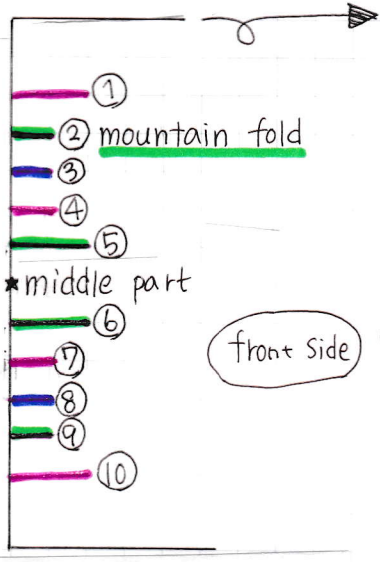 ①
② mountain fold
③
④
⑤
★ middle part
⑥
front side
⑦
⑧
⑨
⑩